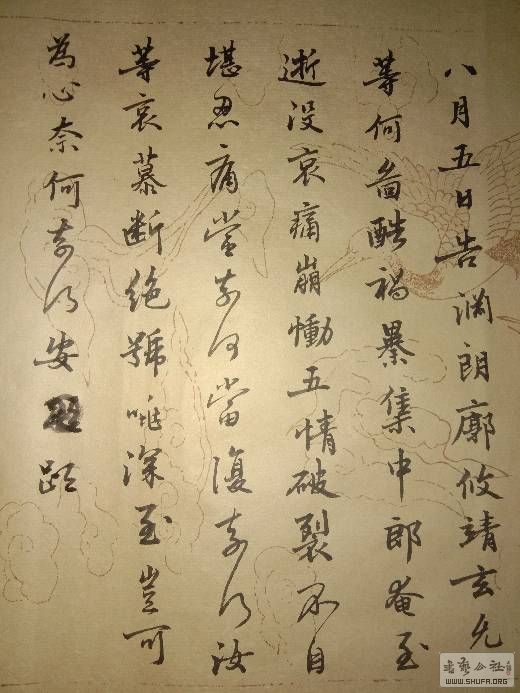 八月五日告淵朗廓攸靖玄允
等何圖酷禍暴集中郎奄至
逝没哀痛崩慟五情破裂不自
堪忍痛當奈何當復奈何汝
等哀慕斷絕號咷深至豈可
為心奈何奈何安疏
書藝公社
WWW.SHUFA.ORG